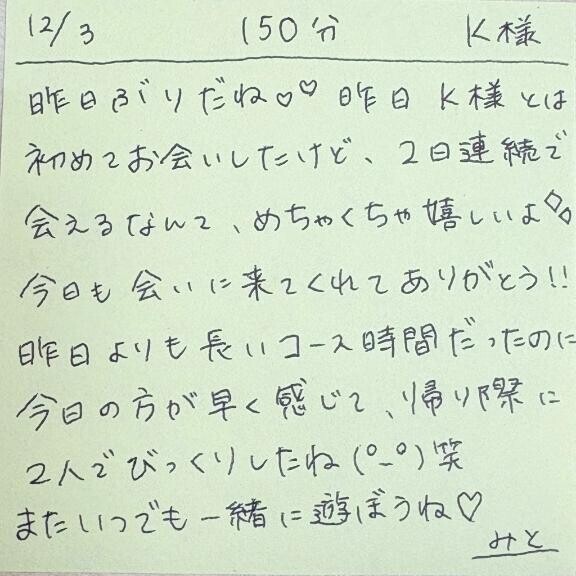 12/3 150分 K様
昨日ぶりだね♡♡ 昨日 K様とは
初めてお会いしたけど、2日連続で
会えるなんて、めちゃくちゃ嬉しいよ◇◇
今日も会いに来てくれてありがとう!!
昨日よりも長いコース時間だったのに
今日の方が早く感じて、帰り際に
2人でびっくりしたね(°-°)笑
またいつでも一緒に遊ぼうね♡
みと